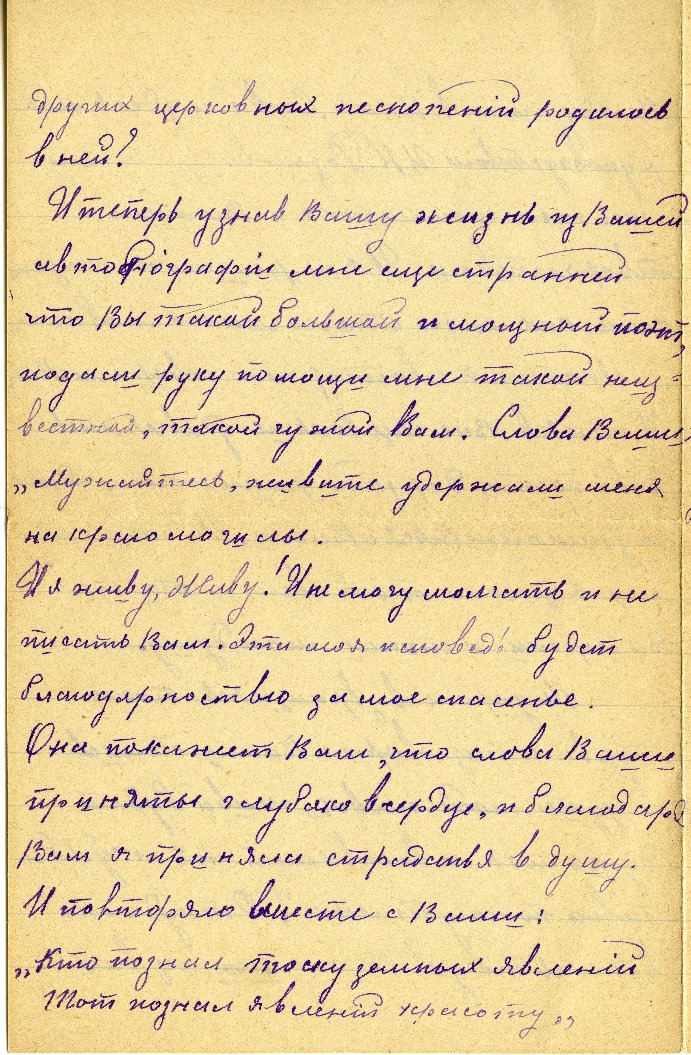 других церковных песнопений родилось
в ней?
И теперь узнав Вашу жизнь из Вашей
автобіографіи мне еще странней
что Вы такой большой и мощный поэт,
подали руку помощи мне такой неиз-
вестной, такой чужой Вам. Слова Ваши,
„Мужайтесь, живите удержали меня
на краю могилы.
И я живу, Живу! И не могу молчать и не
писать Вам. Эти моя исповедь! будет
благодарностью за мое спасенье.
Она покажет Вам, что слова Ваши
приняты глубоко в сердце, и благодаря
Вам я приняла страданья в душу.
И повторяю вместе с Вами:
„Кто познал тоску земных явленій
Тот познал явленій красоту„